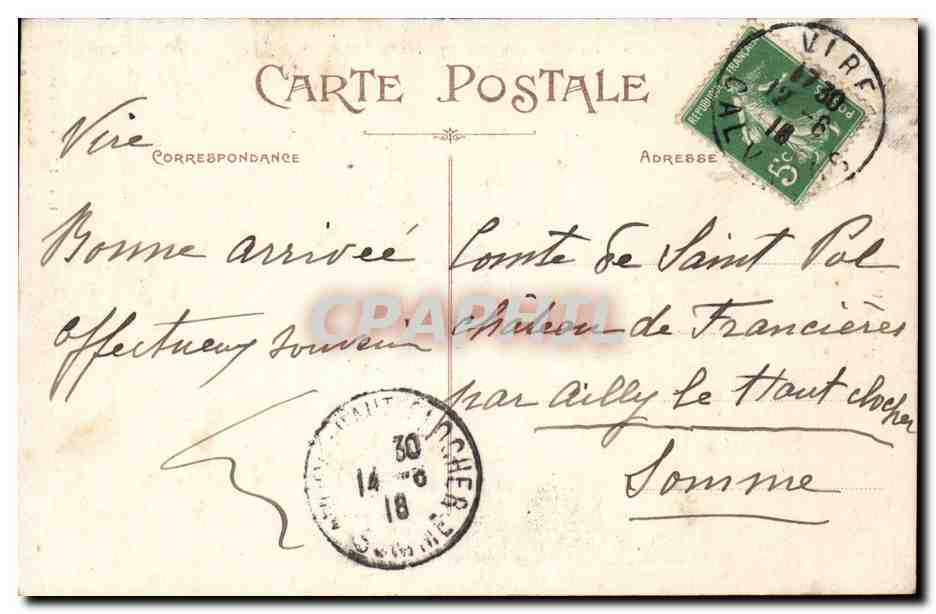 CARTE POSTALE
CORRESPONDANCE
ADRESSE
Vire
Bonne arrivéé
affectueux souvenir
Comte de Saint Pol
château de Francières
par Ailly le Haut clocher
Somme
RÉPUBLIQUE FRANÇAISE
POSTES
5c
VIRE
17 30
12 -6
18
CALV
HAUT CLOCHER
30
14 -6
18
SOMME
CPAPHIL